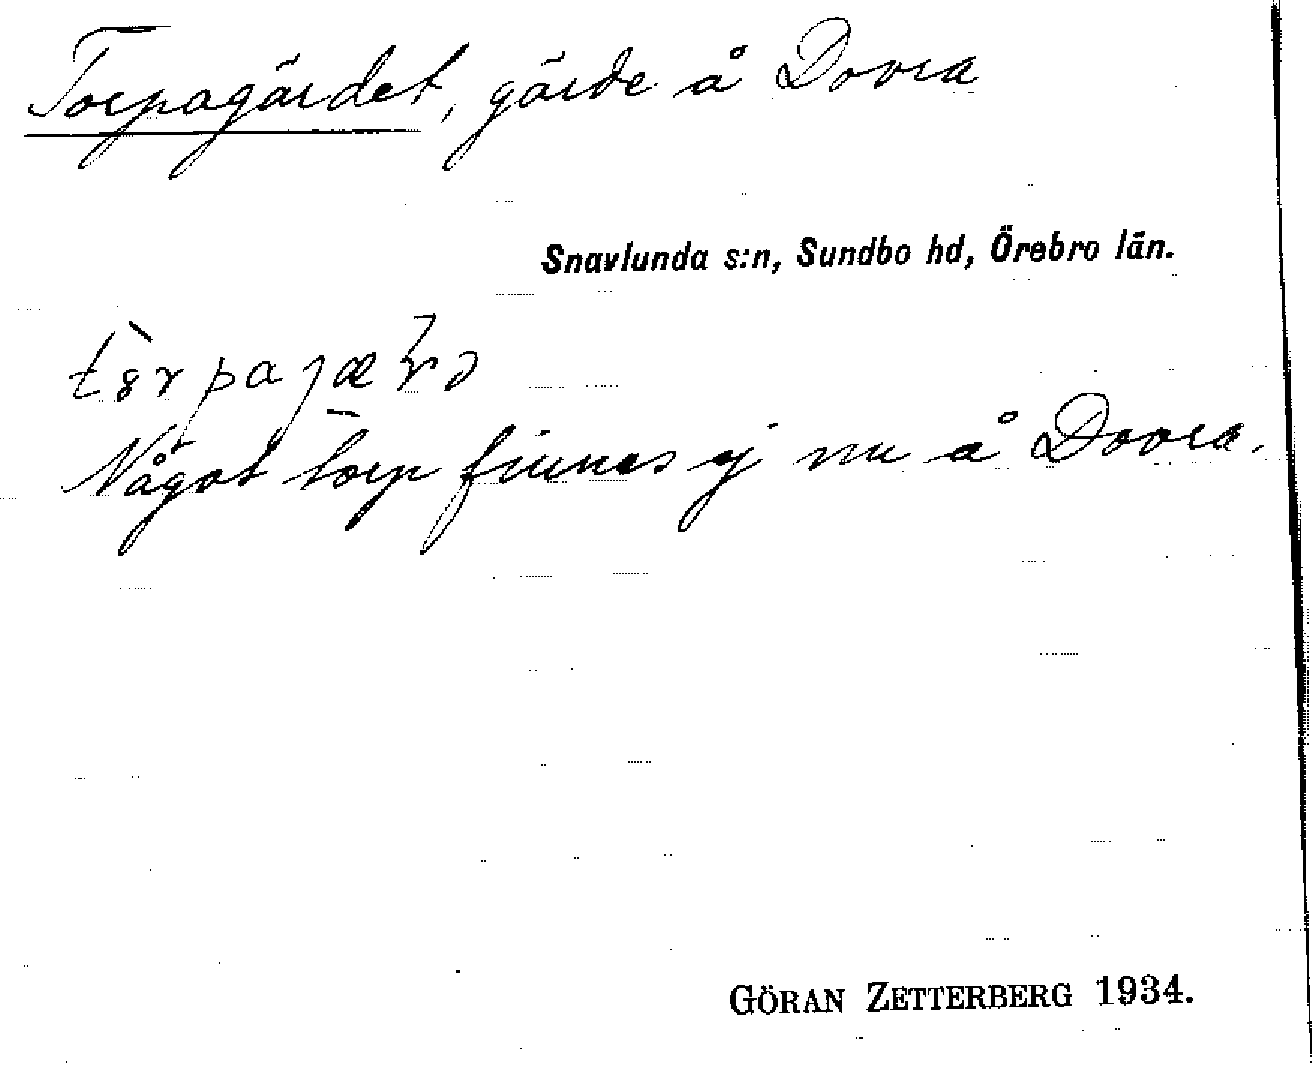 Torpagärdet, gärde å Dovra
Snavlunda s:n, Sundbo hd, Örebro län.
Något torp finnes ej nu å Dovra.
GÖRAN ZETTERBERG 1934.